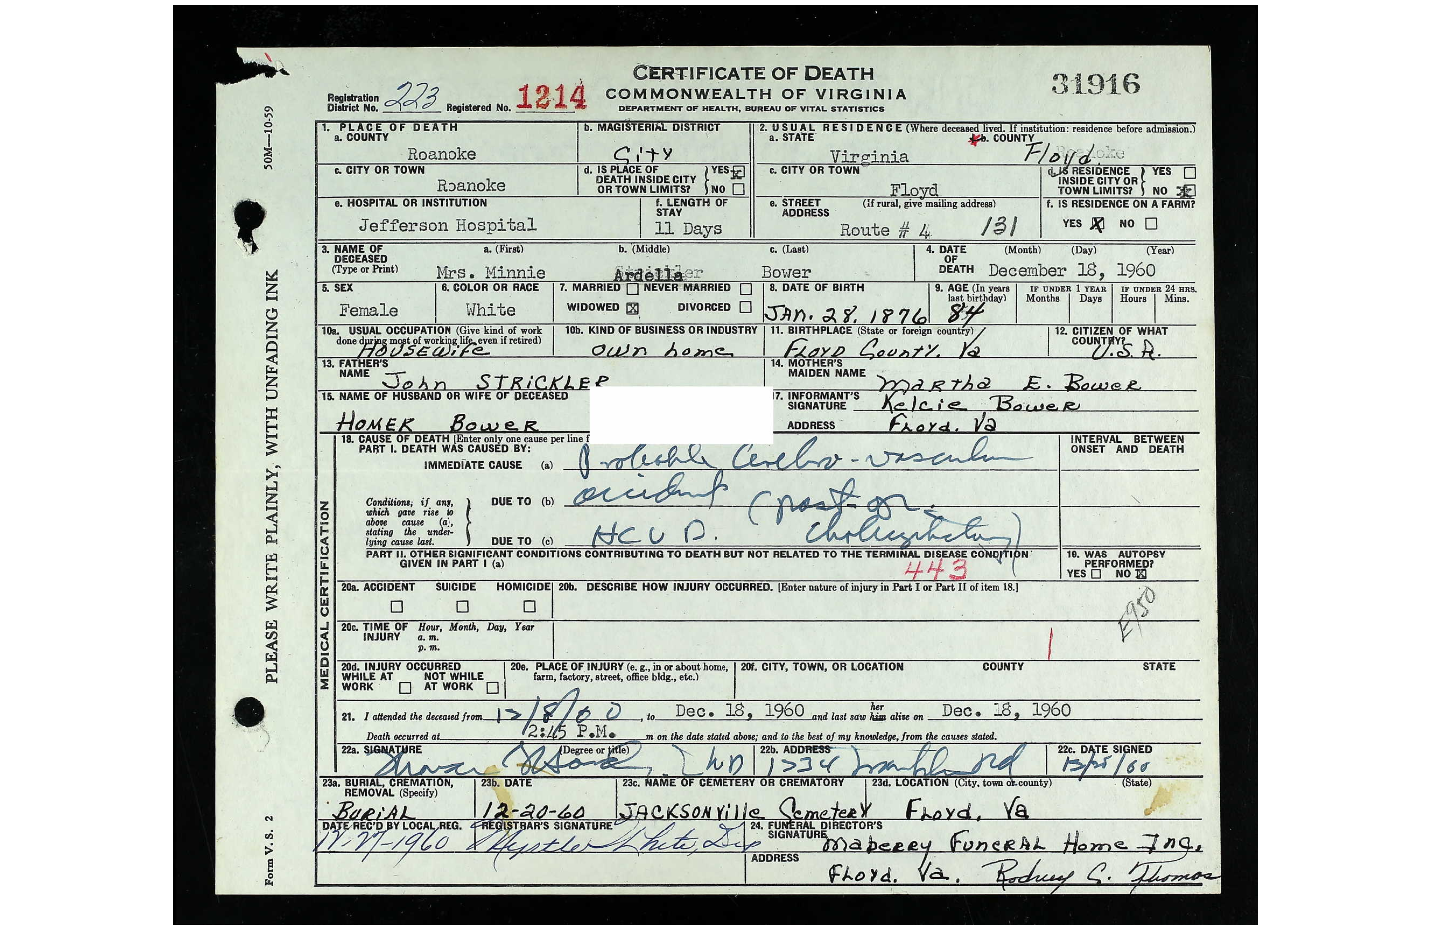 CERTIFICATE OF DEATH
COMMONWEALTH OF VIRGINIA
DEPARTMENT OF HEALTH, BUREAU OF VITAL STATISTICS
31916
Registration District No. 223 Registered No. 1214
50M—10-59
PLEASE WRITE PLAINLY, WITH UNFADING INK
Form V. S. 2
1. PLACE OF DEATH
a. COUNTY
Roanoke
b. MAGISTERIAL DISTRICT
City
2. USUAL RESIDENCE (Where deceased lived. If institution: residence before admission.)
a. STATE
Virginia
b. COUNTY
Floyd
c. CITY OR TOWN
Roanoke
d. IS PLACE OF DEATH INSIDE CITY OR TOWN LIMITS? YES NO
c. CITY OR TOWN
Floyd
d. IS RESIDENCE INSIDE CITY OR TOWN LIMITS? YES NO
e. HOSPITAL OR INSTITUTION
Jefferson Hospital
f. LENGTH OF STAY
11 Days
e. STREET ADDRESS (If rural, give mailing address)
Route # 4 131
f. IS RESIDENCE ON A FARM?
YES NO
3. NAME OF DECEASED (Type or Print)
a. (First) b. (Middle) c. (Last)
Mrs. Minnie Ardella Bower
4. DATE OF DEATH (Month) (Day) (Year)
December 18, 1960
5. SEX
Female
6. COLOR OR RACE
White
7. MARRIED NEVER MARRIED
WIDOWED DIVORCED
8. DATE OF BIRTH
JAN. 28. 1876
9. AGE (In years last birthday)
84
IF UNDER 1 YEAR
Months Days
IF UNDER 24 HRS.
Hours Mins.
10a. USUAL OCCUPATION (Give kind of work done during most of working life, even if retired)
Housewife
10b. KIND OF BUSINESS OR INDUSTRY
own home
11. BIRTHPLACE (State or foreign country)
Floyd County. Va
12. CITIZEN OF WHAT COUNTRY?
U.S.A.
13. FATHER'S NAME
John STRICKLER
14. MOTHER'S MAIDEN NAME
Martha E. Bower
15. NAME OF HUSBAND OR WIFE OF DECEASED
HOMER Bower
17. INFORMANT'S SIGNATURE
Kelcie Bower
ADDRESS Floyd. Va
MEDICAL CERTIFICATION
18. CAUSE OF DEATH [Enter only one cause per line f
PART I. DEATH WAS CAUSED BY:
INTERVAL BETWEEN ONSET AND DEATH
IMMEDIATE CAUSE (a) Probable Cerebro-vascular
Conditions, if any, which gave rise to above cause (a), stating the underlying cause last.
DUE TO (b) accident (post-op.
DUE TO (c) HCVD. cholecystectomy)
PART II. OTHER SIGNIFICANT CONDITIONS CONTRIBUTING TO DEATH BUT NOT RELATED TO THE TERMINAL DISEASE CONDITION GIVEN IN PART I (a)
443
19. WAS AUTOPSY PERFORMED?
YES NO
E950
20a. ACCIDENT SUICIDE HOMICIDE
20b. DESCRIBE HOW INJURY OCCURRED. [Enter nature of injury in Part I or Part II of item 18.]
20c. TIME OF INJURY Hour, Month, Day, Year
a. m.
p. m.
20d. INJURY OCCURRED
WHILE AT WORK NOT WHILE AT WORK
20e. PLACE OF INJURY (e. g., in or about home, farm, factory, street, office bldg., etc.)
20f. CITY, TOWN, OR LOCATION COUNTY STATE
21. I attended the deceased from 12/8/60, to Dec. 18, 1960 and last saw her him alive on Dec. 18, 1960
Death occurred at 2:45 P.M. m on the date stated above; and to the best of my knowledge, from the causes stated.
22a. SIGNATURE (Degree or title)
MD
22b. ADDRESS
1234
22c. DATE SIGNED
23a. BURIAL, CREMATION, REMOVAL (Specify)
Burial
23b. DATE
12-20-60
23c. NAME OF CEMETERY OR CREMATORY
JACKSONville Cemetery
23d. LOCATION (City, town or county) (State)
Floyd, Va
DATE REC'D BY LOCAL REG.
12-27-1960
REGISTRAR'S SIGNATURE
24. FUNERAL DIRECTOR'S SIGNATURE
Maberry Funeral Home Inc.
ADDRESS
Floyd. Va. Rodney C. Thomas